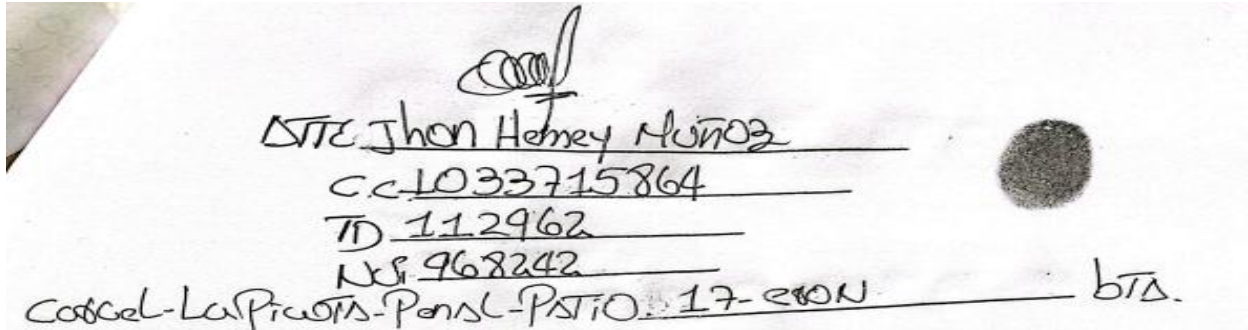 ATTE Jhon Heiney Muñoz
C.C 1033715864
TD 112962
NUI 968242
Carcel-La Picota-Penal-Patio 17-eron bta.